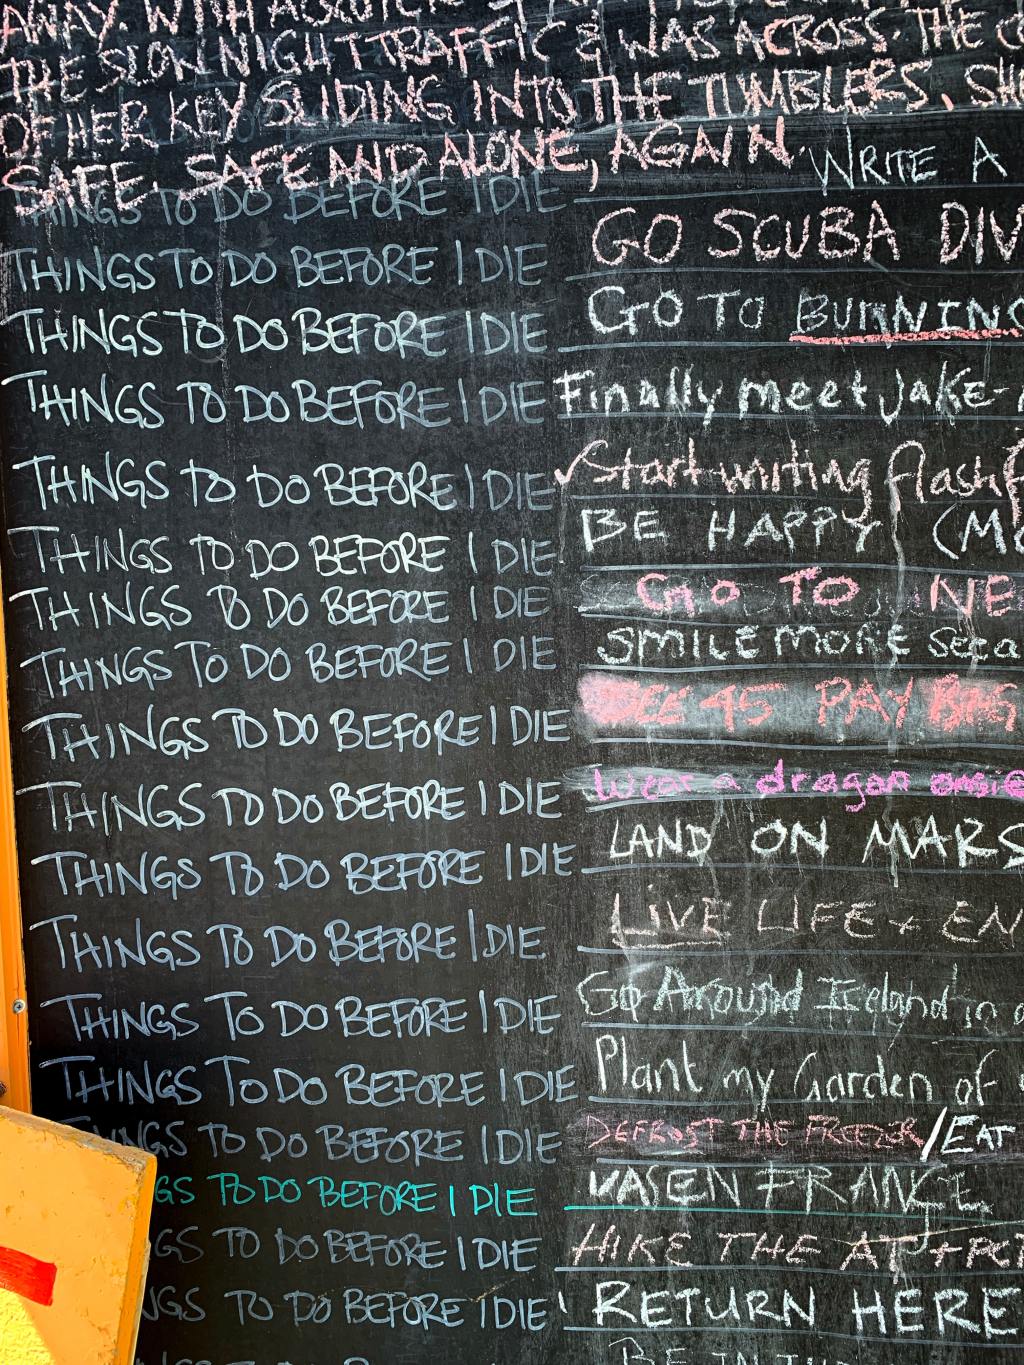 AWAY WITH
THE SLOW NIGHT TRAFFIC & WAS ACROSS. THE
OF HER KEY SLIDING INTO THE TUMBLERS. SHE
SAFE. SAFE AND ALONE, AGAIN.
THINGS TO DO BEFORE I DIE WRITE A
THINGS TO DO BEFORE I DIE GO SCUBA DIV
THINGS TO DO BEFORE I DIE GO TO BURNING
THINGS TO DO BEFORE I DIE Finally meet Jake-
THINGS TO DO BEFORE I DIE ✓Start writing flash f
THINGS TO DO BEFORE I DIE BE HAPPY (MO
THINGS TO DO BEFORE I DIE GO TO NE
THINGS TO DO BEFORE I DIE SMILE MORE
THINGS TO DO BEFORE I DIE SEE 45 PAY
THINGS TO DO BEFORE I DIE Wear a dragon onsie
THINGS TO DO BEFORE I DIE LAND ON MARS
THINGS TO DO BEFORE I DIE LIVE LIFE + EN
THINGS TO DO BEFORE I DIE Go Around Iceland in a
THINGS TO DO BEFORE I DIE Plant my Garden of
NGS TO DO BEFORE I DIE DEFROST THE FREEZER/EAT
GS TO DO BEFORE I DIE FRANCE
GS TO DO BEFORE I DIE HIKE THE AT +
NGS TO DO BEFORE I DIE RETURN HERE
BE IN